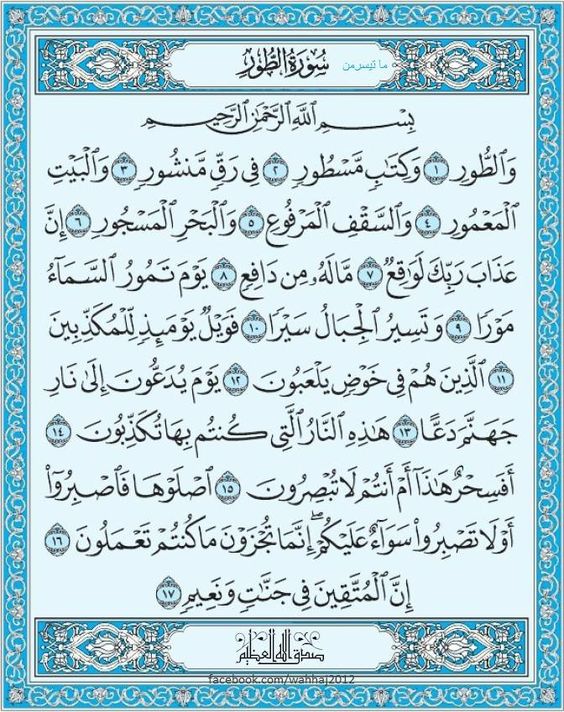 ما تيسر من سُورَةُ الطُّورِ
بِسْمِ اللَّهِ الرَّحْمَٰنِ الرَّحِيمِ
وَالطُّورِ ١ وَكِتَابٍ مَّسْطُورٍ ٢ فِي رَقٍّ مَّنشُورٍ ٣ وَالْبَيْتِ
الْمَعْمُورِ ٤ وَالسَّقْفِ الْمَرْفُوعِ ٥ وَالْبَحْرِ الْمَسْجُورِ ٦ إِنَّ
عَذَابَ رَبِّكَ لَوَاقِعٌ ٧ مَّا لَهُ مِن دَافِعٍ ٨ يَوْمَ تَمُورُ السَّمَاءُ
مَوْرًا ٩ وَتَسِيرُ الْجِبَالُ سَيْرًا ١٠ فَوَيْلٌ يَوْمَئِذٍ لِّلْمُكَذِّبِينَ
١١ الَّذِينَ هُمْ فِي خَوْضٍ يَلْعَبُونَ ١٢ يَوْمَ يُدَعُّونَ إِلَىٰ نَارِ
جَهَنَّمَ دَعًّا ١٣ هَٰذِهِ النَّارُ الَّتِي كُنتُم بِهَا تُكَذِّبُونَ ١٤
أَفَسِحْرٌ هَٰذَا أَمْ أَنتُمْ لَا تُبْصِرُونَ ١٥ اصْلَوْهَا فَاصْبِرُوا
أَوْ لَا تَصْبِرُوا سَوَاءٌ عَلَيْكُمْ ۖ إِنَّمَا تُجْزَوْنَ مَا كُنتُمْ تَعْمَلُونَ ١٦
إِنَّ الْمُتَّقِينَ فِي جَنَّاتٍ وَنَعِيمٍ ١٧
صدق الله العظيم
facebook.com/wahhaj2012